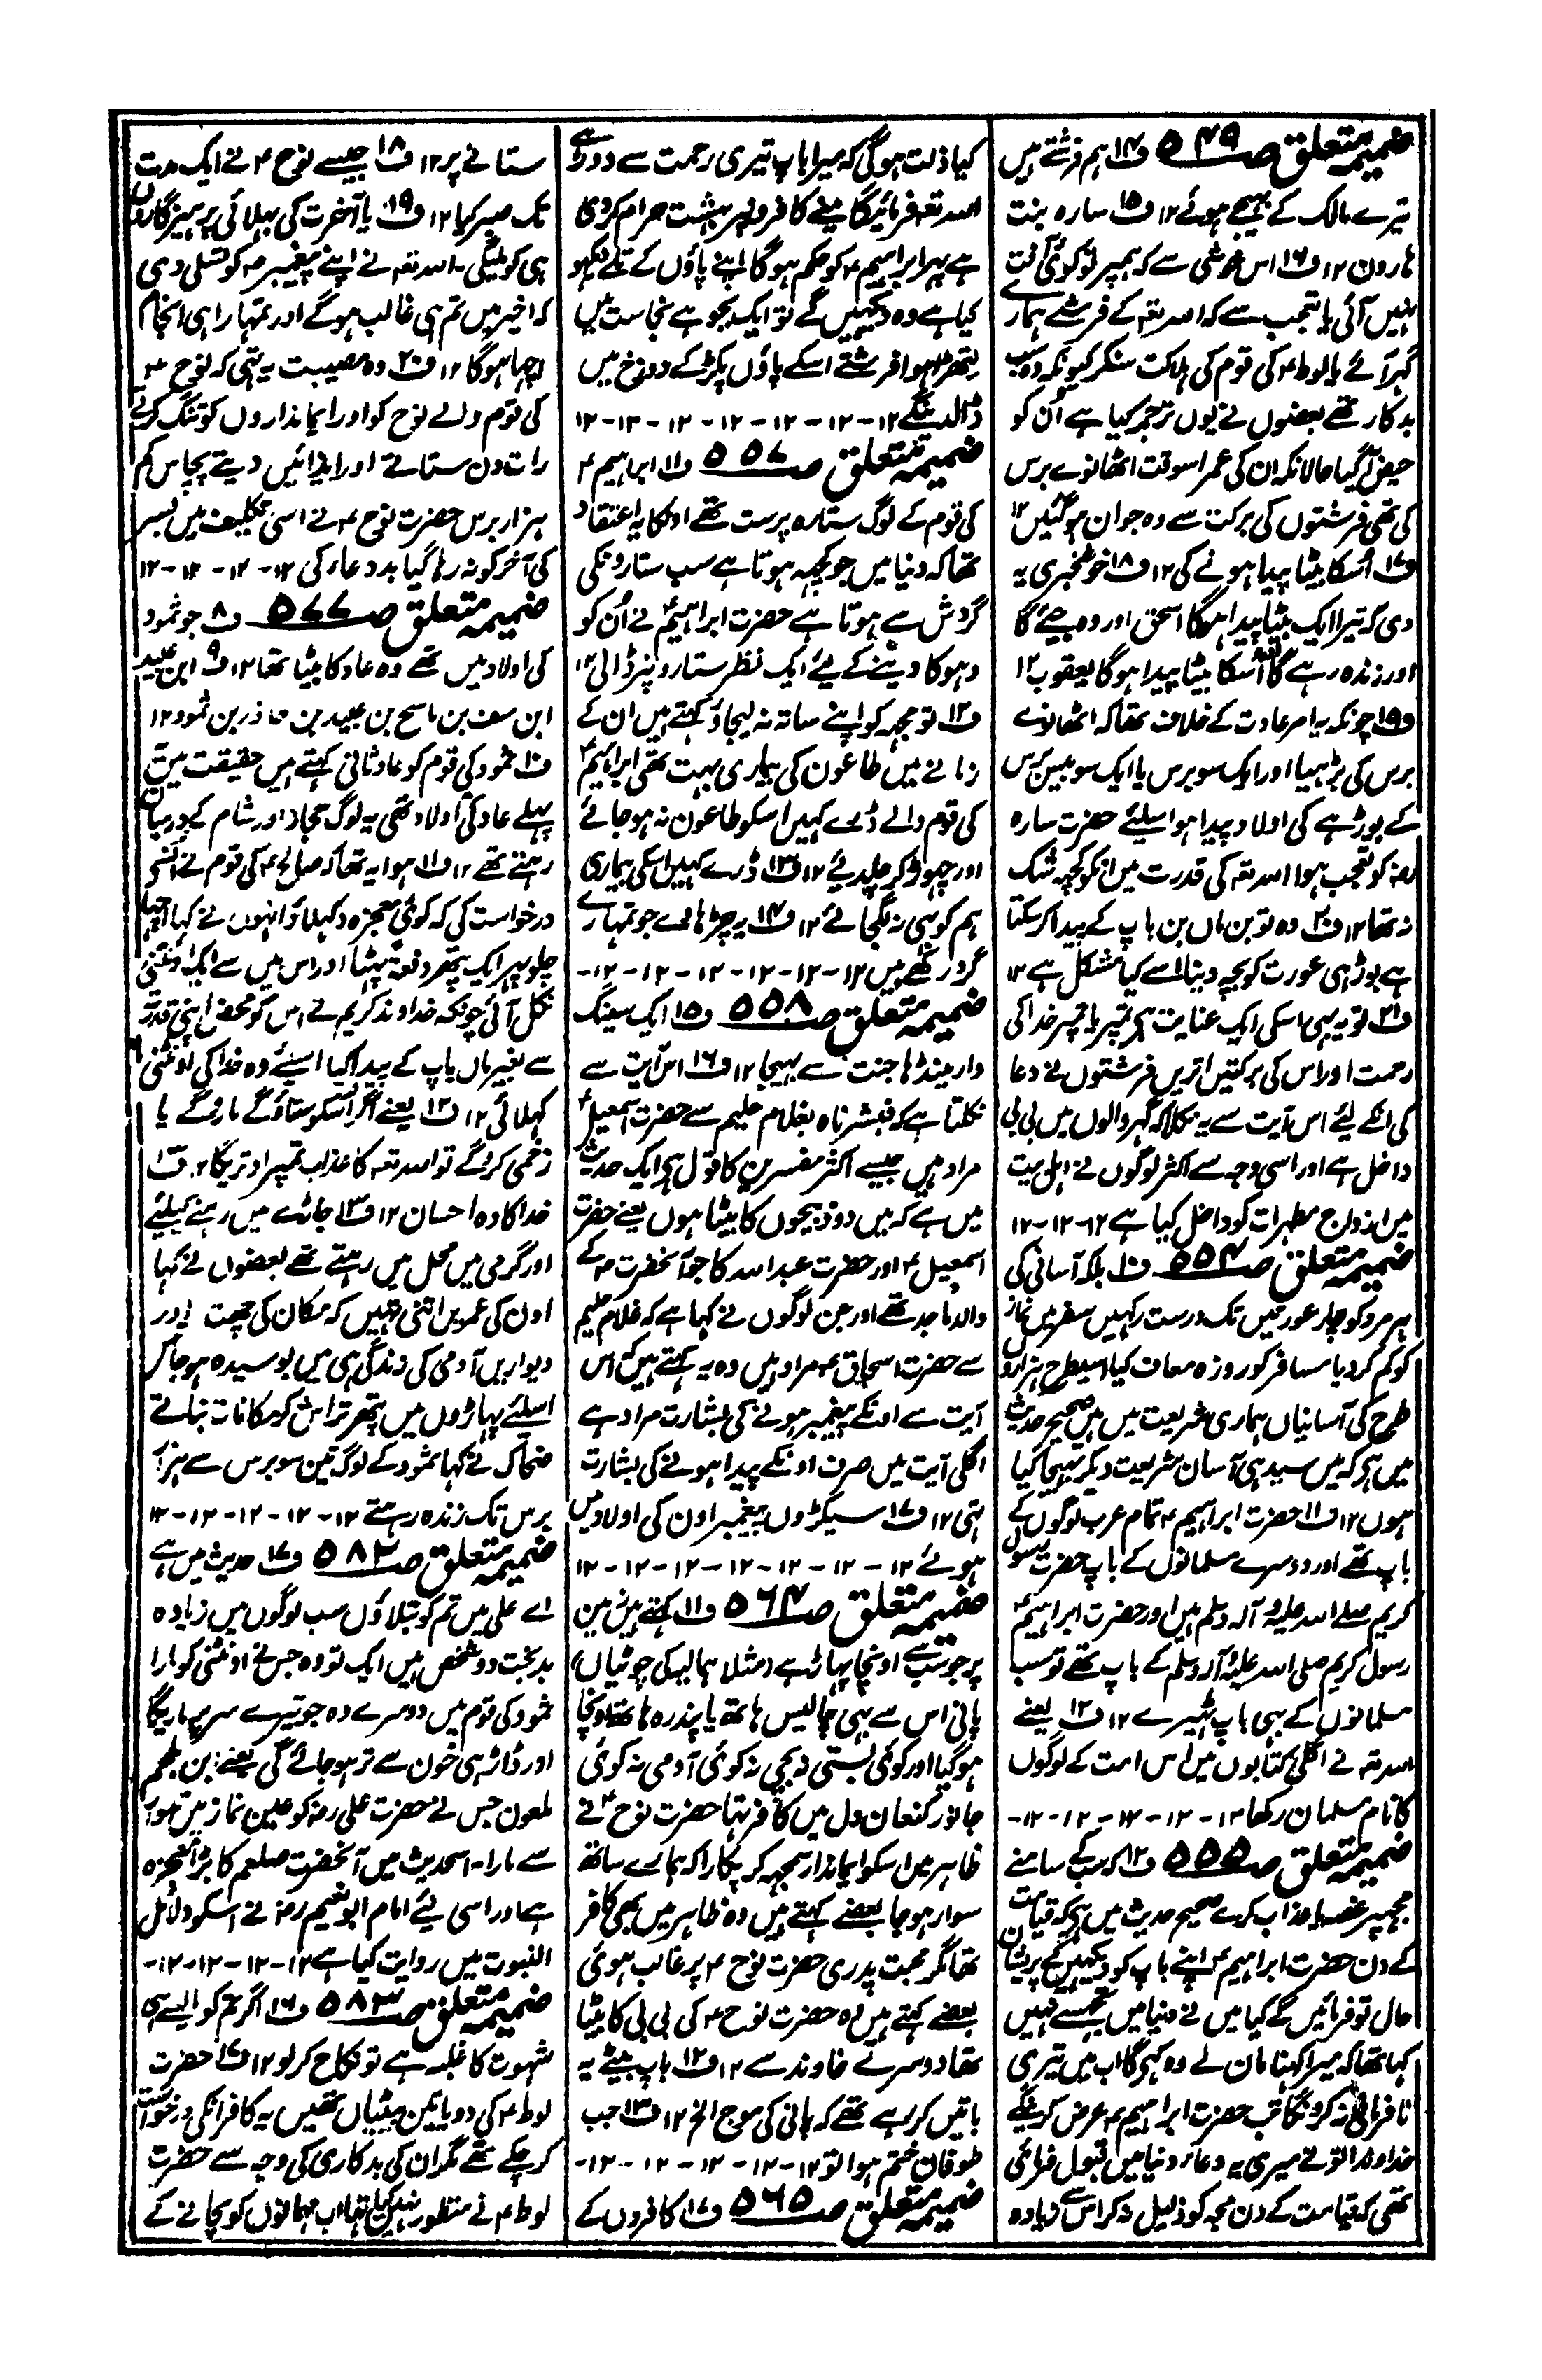 ضمیمہ متعلق صـ ۵۴۹ ف۱۴ ہم فرشتے ہیں
تیرے مالک کے بھیجے ہوئے ۱۲ ف۱۵ سارہ بنت
ہارون ۱۲ ف۱۶ اس خوشی سے کہ ہمپر تو کوئی آفت
نہیں آئی یا تعجب سے کہ اللہ تعہ کے فرشتے ہمارے
گہر آئے یا لوط ؑ کی قوم کی ہلاکت سنکر کیونکہ وہ سب
بدکار تھے بعضوں نے یوں ترجمہ کیا ہے اُن کو
حیض آگیا حالانکہ ان کی عمر اسوقت اٹھانوے برس
کی تھی فرشتوں کی برکت سے وہ جوان ہوگئیں ۱۲
ف۱۷ اُسکا بیٹا پیدا ہونے کی ۱۲ ف۱۸ خوشخبری یہ
دی کہ تیرا ایک بیٹا پیدا ہوگا اسحٰق اور وہ جئے گا
اور زندہ رہے گا اُسکا بیٹا پیدا ہوگا یعقوب ۱۲
ف۱۹ چونکہ یہ امر عادت کے خلاف تھا کہ اٹھانوے
برس کی بڑہیا اور ایک سو برس یا ایک سو بیس برس
کے بوڑہے کی اولاد پیدا ہو اسلئے حضرت سارہ
رضہ کو تعجب ہوا اللہ تعہ کی قدرت میں انکو کچہہ شک
نہ تھا ۱۲ ف۲۰ وہ تو بن ماں بن باپ کے پیدا کرسکتا
ہے بوڑہی عورت کو بچہ دینا اسے کیا مشکل ہے ۱۲
ف۲۱ تو یہ بہی اسکی ایک عنایت ہے تمپر یا تمپر خدا کی
رحمت اور اس کی برکتیں اتریں فرشتوں نے دعا
کی انکے لیئے اس آیت سے یہ نکلا کہ گہر والوں میں بی بی
داخل ہے اور اسی وجہ سے اکثر لوگوں نے اہل بیت
میں ازواج مطہرات کو داخل کیا ہے ۱۲-۱۲-۱۲
ضمیمہ متعلق صـ ۵۵۴ ف۱۰ بلکہ آسانی کی
ہر مرد کو چار عورتیں تک درست رکہیں سفر میں نماز
کو کم کردیا مسافر کو روزہ معاف کیا اسیطرح ہزاروں
طرح کی آسانیاں ہماری شریعت میں ہیں صحیح حدیث
میں ہے کہ میں سیدہی آسان شریعت دیکر بہیجا گیا
ہوں ۱۲ ف۱۱ حضرت ابراہیم ؑ تمام عرب لوگوں کے
باپ تھے اور دوسرے مسلمانوں کے باپ حضرت رسول
کریم صلے اللہ علیہ وآلہ وسلم ہیں اور حضرت ابراہیم ؑ
رسول کریم صلی اللہ علیہ وآلہ وسلم کے باپ تھے تو سب
مسلمانوں کے بہی باپ ٹہیرے ۱۲ ف۱۲ یعنے
اللہ تعہ نے اگلی کتابوں میں اس امت کے لوگوں
کا نام مسلمان رکھا ۱۲-۱۲-۱۲-۱۲-۱۲-
ضمیمہ متعلق صـ ۵۵۵ ف۱۲ کہ سب کے سامنے
مجہپر غصہ یا عذاب کرے صحیح حدیث میں ہے کہ قیامت
کے دن حضرت ابراہیم ؑ اپنے باپ کو دیکہیں گے پریشان
حال تو فرمائیں گے کیا میں نے دنیا میں تجہسے نہیں
کہا تھا کہ میرا کہنا مان لے وہ کہیگا اب میں تیری
نافرمانی نہ کرونگا تب حضرت ابراہیم ؑ عرض کرینگے
خداوندا تو نے میری یہ دعاء دنیا میں قبول فرمائی
تھی کہ قیامت کے دن مجہہ کو ذلیل نہ کر اس سے زیادہ
کیا ذلت ہوگی کہ میرا باپ تیری رحمت سے دور رہے
اللہ تعہ فرمائیگا مینے کافرونپر بہشت حرام کردی
ہے پہر ابراہیم ؑ کو حکم ہوگا اپنے پاؤں کے تلے دیکہو
کیا ہے وہ دیکہیں گے تو ایک بجو ہے نجاست میں
لتھڑا ہوا فرشتے اسکے پاؤں پکڑ کے دوزخ میں
ڈالدینگے ۱۲-۱۲-۱۲-۱۲-۱۲-۱۲-۱۲
ضمیمہ متعلق صـ ۵۵۷ ف۱۱ ابراہیم ؑ
کی قوم کے لوگ ستارہ پرست تھے اونکا یہ اعتقاد
تھا کہ دنیا میں جو کچہہ ہوتا ہے سب ستارونکی
گردش سے ہوتا ہے حضرت ابراہیم ؑ نے اُن کو
دہوکا دینے کے لیئے ایک نظر ستارونپر ڈالی ۱۲
ف۱۲ تو مجہہ کو اپنے ساتہ نہ لیجاؤ کہتے ہیں ان کے
زمانے میں طاعون کی بیماری بہت تھی ابراہیم ؑ
کی قوم والے ڈرے کہیں اسکو طاعون نہ ہوجائے
اور چہوڑ کر چلدیئے ۱۲ ف۱۳ ڈرے کہیں اسکی بیماری
ہم کو بہی نہ لگجائے ۱۲ ف۱۴ یہ چڑہاوے جو تمہارے
گرد رکھے ہیں ۱۲-۱۲-۱۲-۱۲-۱۲-۱۲-
ضمیمہ متعلق صـ ۵۵۸ ف۱۵ ایک سینگ
دار مینڈہا جنت سے بہیجا ۱۲ ف۱۶ اس آیت سے
نکلتا ہے کہ فبشرناہ بغلام حلیم سے حضرت اسمعیل ؑ
مراد ہیں جیسے اکثر مفسرین کا قول ہے ایک حدیث
میں ہے کہ میں دو ذبیحوں کا بیٹا ہوں یعنے حضرت
اسمعیل ؑ اور حضرت عبداللہ کا جو آنحضرت ؐ کے
والد ماجد تھے اور جن لوگوں نے کہا ہے کہ غلام حلیم
سے حضرت اسحاق ؑ مراد ہیں وہ یہ کہتے ہیں کہ اس
آیت سے اونکے پیغمبر ہونے کی بشارت مراد ہے
اگلی آیت میں صرف اونکے پیدا ہونے کی بشارت
تہی ۱۲ ف۱۷ سیکڑوں پیغمبر اون کی اولاد میں
ہوئے ۱۲-۱۲-۱۲-۱۲-۱۲-۱۲-۱۲
ضمیمہ متعلق صـ ۵۶۴ ف۱۱ کہتے ہیں زمین
پر جو سب سے اونچا پہاڑ ہے (مثلا ہمالیہ کی چوٹیاں)
پانی اس سے بہی چالیس ہاتھ یا پندرہ ہاتھ اونچا
ہوگیا اور کوئی بستی نہ بچی نہ کوئی آدمی نہ کوئی
جانور کنعان دل میں کافر تہا حضرت نوح ؑ نے
ظاہر میں اسکو ایماندار سمجہہ کر پکارا کہ ہمارے ساتھ
سوار ہوجا بعضے کہتے ہیں وہ ظاہر میں بھی کافر
تھا مگر محبت پدری حضرت نوح ؑ پر غالب ہوئی
بعضے کہتے ہیں وہ حضرت نوح ؑ کی بی بی کا بیٹا
تھا دوسرے خاوند سے ۱۲ ف۱۲ باپ بیٹے یہ
باتیں کر رہے تھے کہ پانی کی موج الخ ۱۲ ف۱۳ جب
طوفان ختم ہوا تو ۱۲-۱۲-۱۲-۱۲-۱۲-
ضمیمہ متعلق صـ ۵۶۵ ف۱۷ کافروں کے
ستانے پر ۱۲ ف۱۸ جیسے نوح ؑ نے ایک مدت
تک صبر کیا ۱۲ ف۱۹ یا آخرت کی بہلائی پرہیزگاروں
ہی کو ملیگی ۔ اللہ تعہ نے اپنے پیغمبر ؐ کو تسلی دی
کہ اخیر میں تم ہی غالب ہوگے اور تمہارا ہی انجام
اچہا ہوگا ۱۲ ف۲۰ وہ مصیبت یہ تہی کہ نوح ؑ
کی قوم والے نوح کو اور ایمانداروں کو تنگ کرتے
رات دن ستاتے اور ایذائیں دیتے پچاس کم
ہزار برس حضرت نوح ؑ نے اسی تکلیف میں بسر
کی آخر کو نہ رہا گیا بد دعاء کی ۱۲-۱۲-۱۲-۱۲
ضمیمہ متعلق صـ ۵۷۷ ف۸ جو ثمود
کی اولاد میں تھے وہ عاد کا بیٹا تھا ۱۲ ف۹ ابن عبید
ابن سف بن ماسح بن عبید بن حاذر بن ثمود ۱۲
ف۱۰ ثمود کی قوم کو عاد ثانی کہتے ہیں حقیقت میں یہ
پہلے عاد کی اولاد تھی یہ لوگ حجاز اور شام کے درمیان
رہتے تھے ۱۲ ف۱۱ ہوا یہ تھا کہ صالح ؑ کی قوم نے انسے
درخواست کی کہ کوئی معجزہ دکہلاؤ انہوں نے کہا اچہا
چلو پہر ایک پتھر دفعۃ پہٹا اور اس میں سے ایک اونٹنی
نکل آئی چونکہ خداوند کریم نے اس کو محض اپنی قدرت
سے بغیر ماں باپ کے پیدا کیا اسلئے وہ خدا کی اونٹنی
کہلائی ۱۲ ف۱۲ یعنے اگر اُسکو ستاؤگے ماروگے یا
زخمی کروگے تو اللہ تعہ کا عذاب تمپر اوتریگا ۱۲ ف۱۰
خدا کا وہ احسان ۱۲ ف۱۳ جاڑے میں رہنے کیلئے
اور گرمی میں محل میں رہتے تھے بعضوں نے کہا
اون کی عمریں اتنی تہیں کہ مکان کی چہت اور
دیواریں آدمی کی زندگی ہی میں بوسیدہ ہوجاتیں
اسلئے پہاڑوں میں پتھر تراش کر مکانات بناتے
ضحاک نے کہا ثمود کے لوگ تین سو برس سے ہزار
برس تک زندہ رہتے ۱۲-۱۲-۱۲-۱۲-۱۲
ضمیمہ متعلق صـ ۵۸۲ ف۱۷ حدیث میں ہے
اے علی میں تم کو بتلاؤں سب لوگوں میں زیادہ
بدبخت دو شخص ہیں ایک تو وہ جس نے اونٹنی کو مارا
ثمود کی قوم میں دوسرے وہ جو تیرے سر پر ماریگا
اور ڈاڑہی خون سے تر ہوجائے گی یعنے ابن ملجم
ملعون جس نے حضرت علی رضہ کو عین نماز میں تلوار
سے مارا۔ اسحدیث میں آنحضرت صلعم کا بڑا معجزہ
ہے اور اسی لیئے امام ابو نعیم رحہ نے اسکو دلائل
النبوت میں روایت کیا ہے ۱۲-۱۲-۱۲-۱۲-
ضمیمہ متعلق صـ ۵۸۳ ف۱۶ اگر تم کو ایسے ہی
شہوت کا غلبہ ہے تو نکاح کرلو ۱۲ ف۱۷ حضرت
لوط ؑ کی دو یا تین بیٹیاں تھیں یہ کافر انکی درخواست
کر چکے تھے مگر ان کی بدکاری کی وجہ سے حضرت
لوط ؑ نے منظور نہیں کیا تہا اب مہمانوں کو بچانے کے